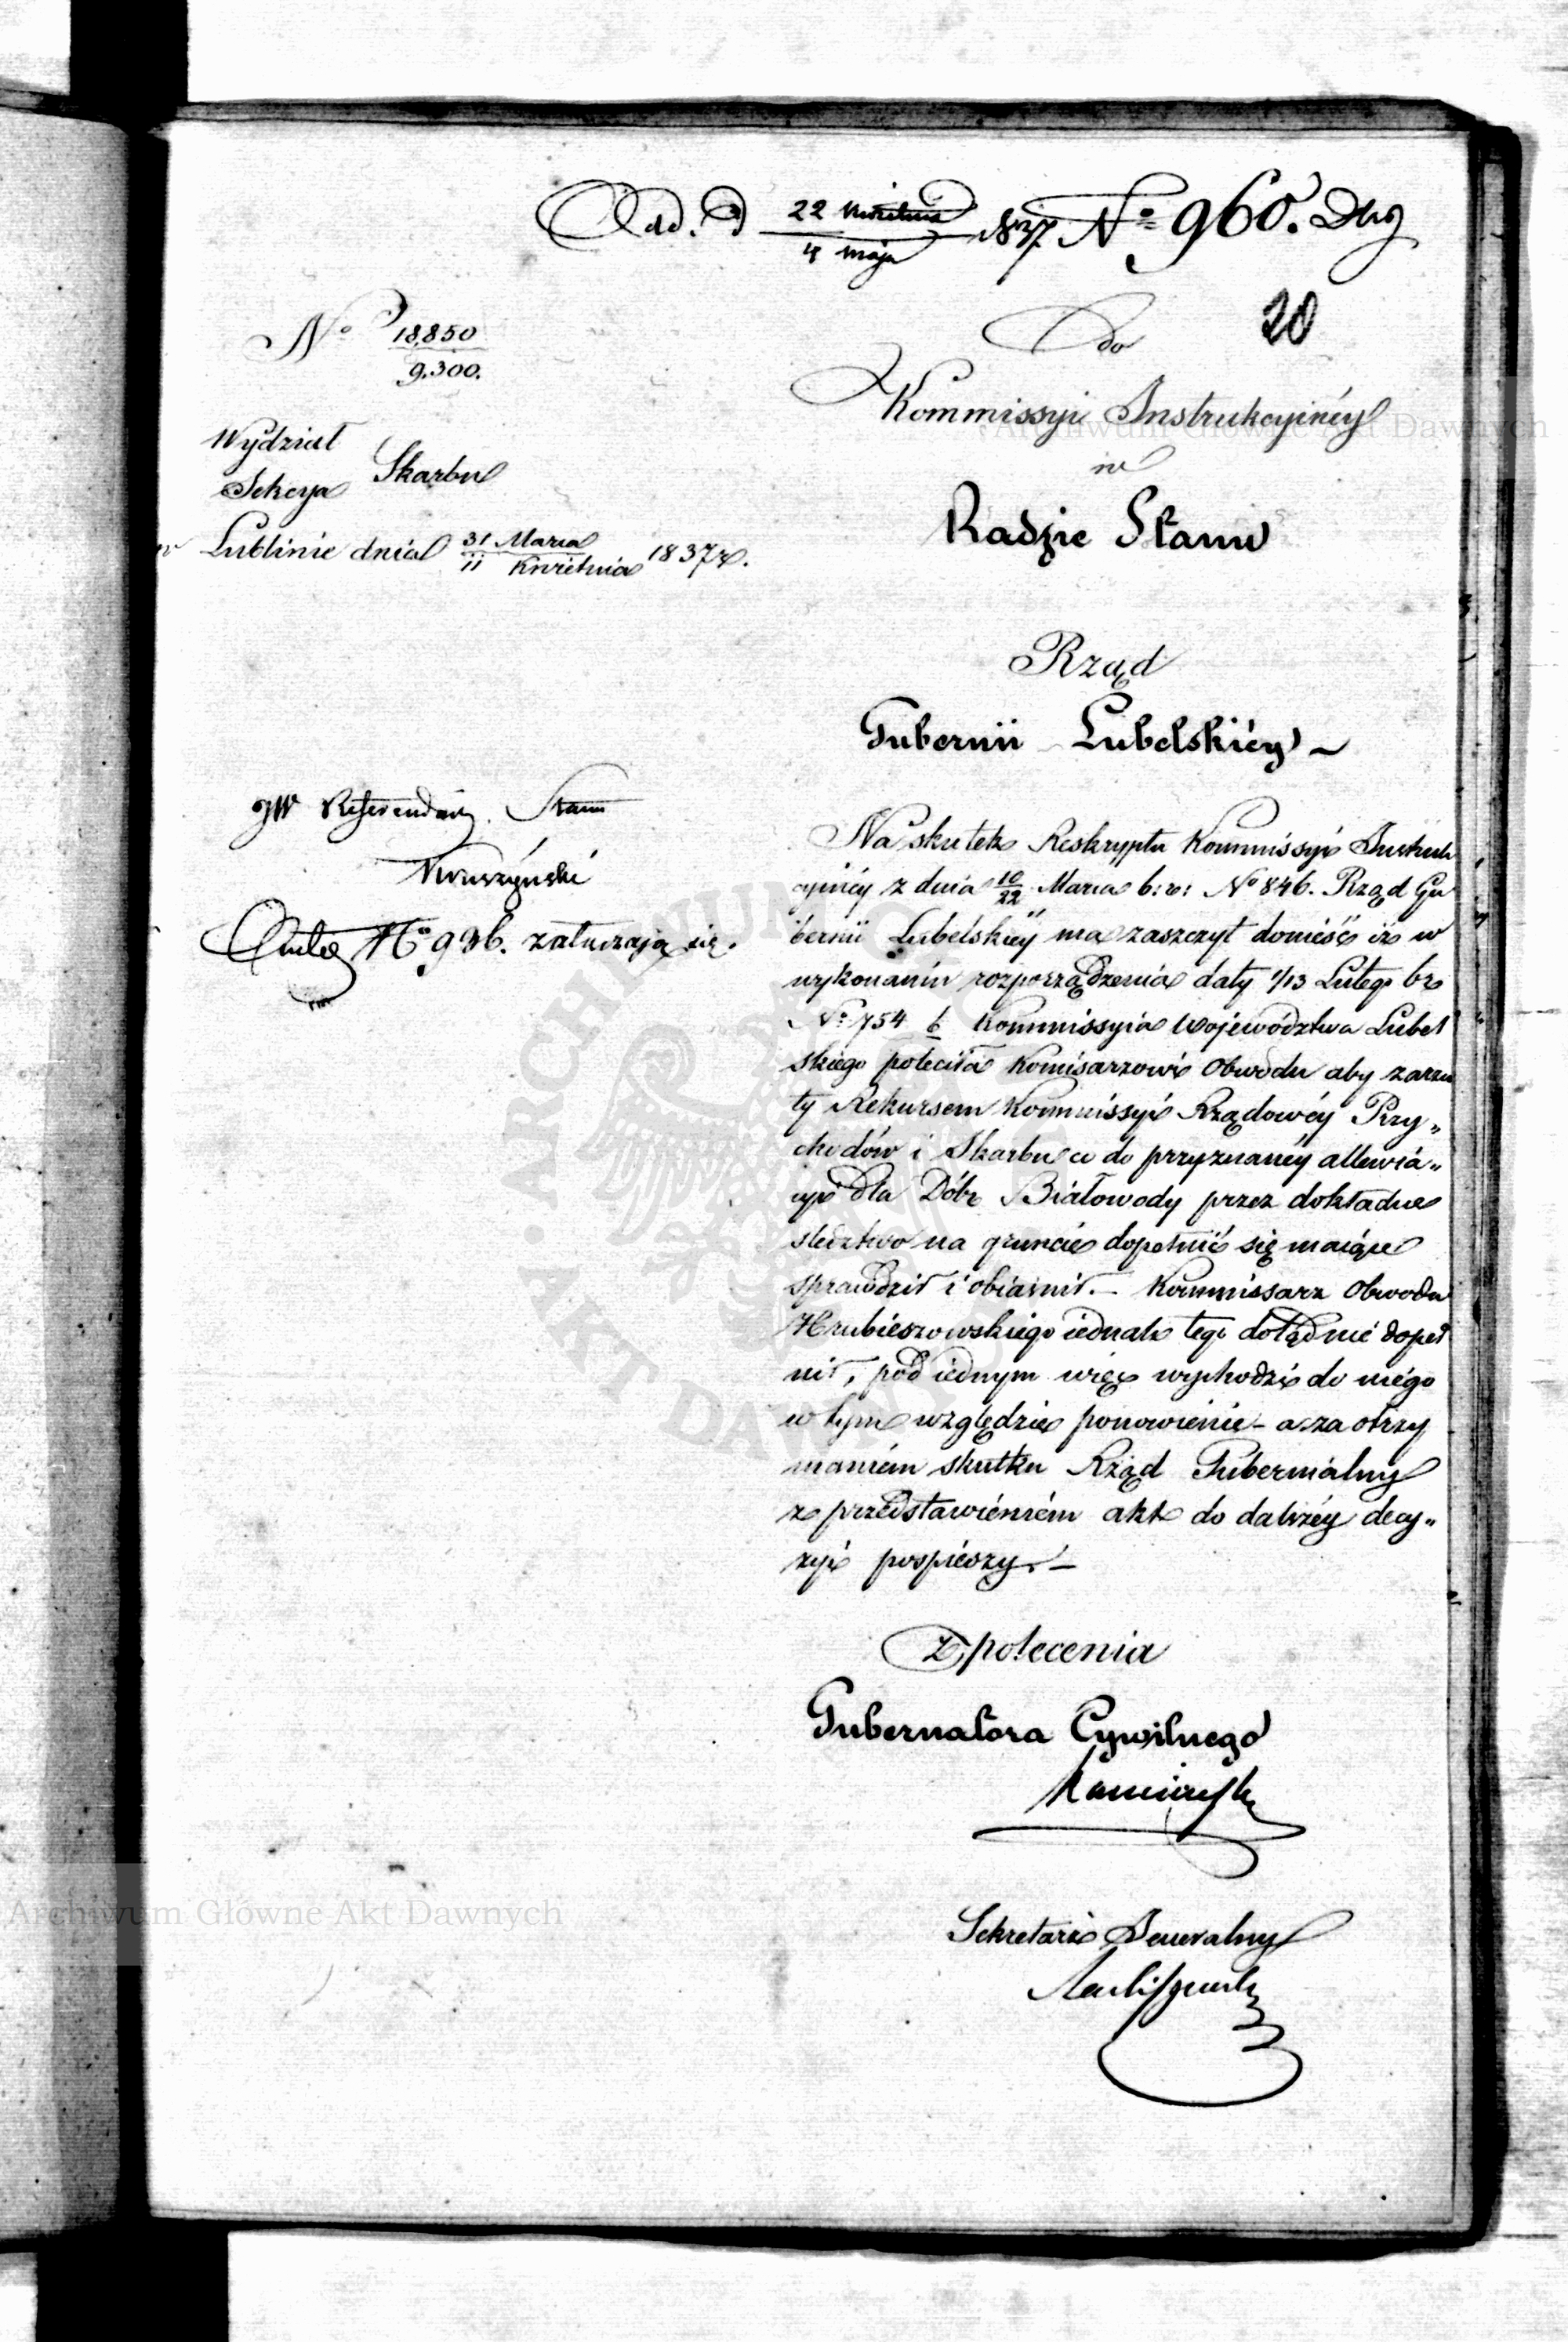 Odd. d 22 kwietnia / 4 maja 1837 Nº 960. Dwg
20
Nº 18,850 / 9,300.
Do
Kommissyi Instrukcyinéy
w
Radzie Stanu
Wydział
Sekcya Skarbu
w Lublinie dnia 31 Marca / 11 Kwietnia 1837 r.
Rząd
Gubernii Lubelskiéy
JW Referendarz Stanu
Akta Nº 936. załączają się.
Na skutek Reskryptu Kommissyi Instruk
cyinéy z dnia 10/22 Marca b: r: Nº 846. Rząd Gu
bernii Lubelskiéy ma zaszczyt donieść iż w
wykonaniu rozporządzenia daty 1/13 Lutego br
Nº 754 Kommissyia Województwa Lubel
skiego poleciła Komisarzowi Obwodu aby zarzu
ty Rekursem Kommissyi Rządowéy Przy„
chodów i Skarbu co do przyznanéy allewia„
cyi dla Dóbr Białowody przez dokładne
sledztwo na gruncie dopełnić się maiące
sprawdził i obiaśnił. – Kommissarz Obwodu
Hrubieszowskiego iednak tego dotąd nie dopeł
nił, pod iednym więc wychodzi do niégo
w tym względzie ponowienie – a za otrzy
maniém skutku Rząd Gubernialny
z przedstawieniém akt do dalszéy decy„
zyi pospieszy. –
Z polecenia
Gubernatora Cywilnego
Sekretarz Jeneralny
Archiwum Główne Akt Dawnych
Archiwum Główne Akt Dawnych